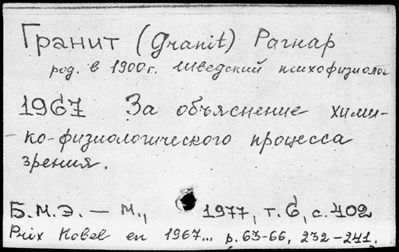 Гранит (Granit) Рагнар
род. в 1900г. шведский психофизиолог
1967 За объяснение хими-
-ко-физиологического процесса
зрения.
Б.М.Э. – М., 1977, т. 6, с. 402
Prix Nobel en 1967... p. 63-66, 232-241.